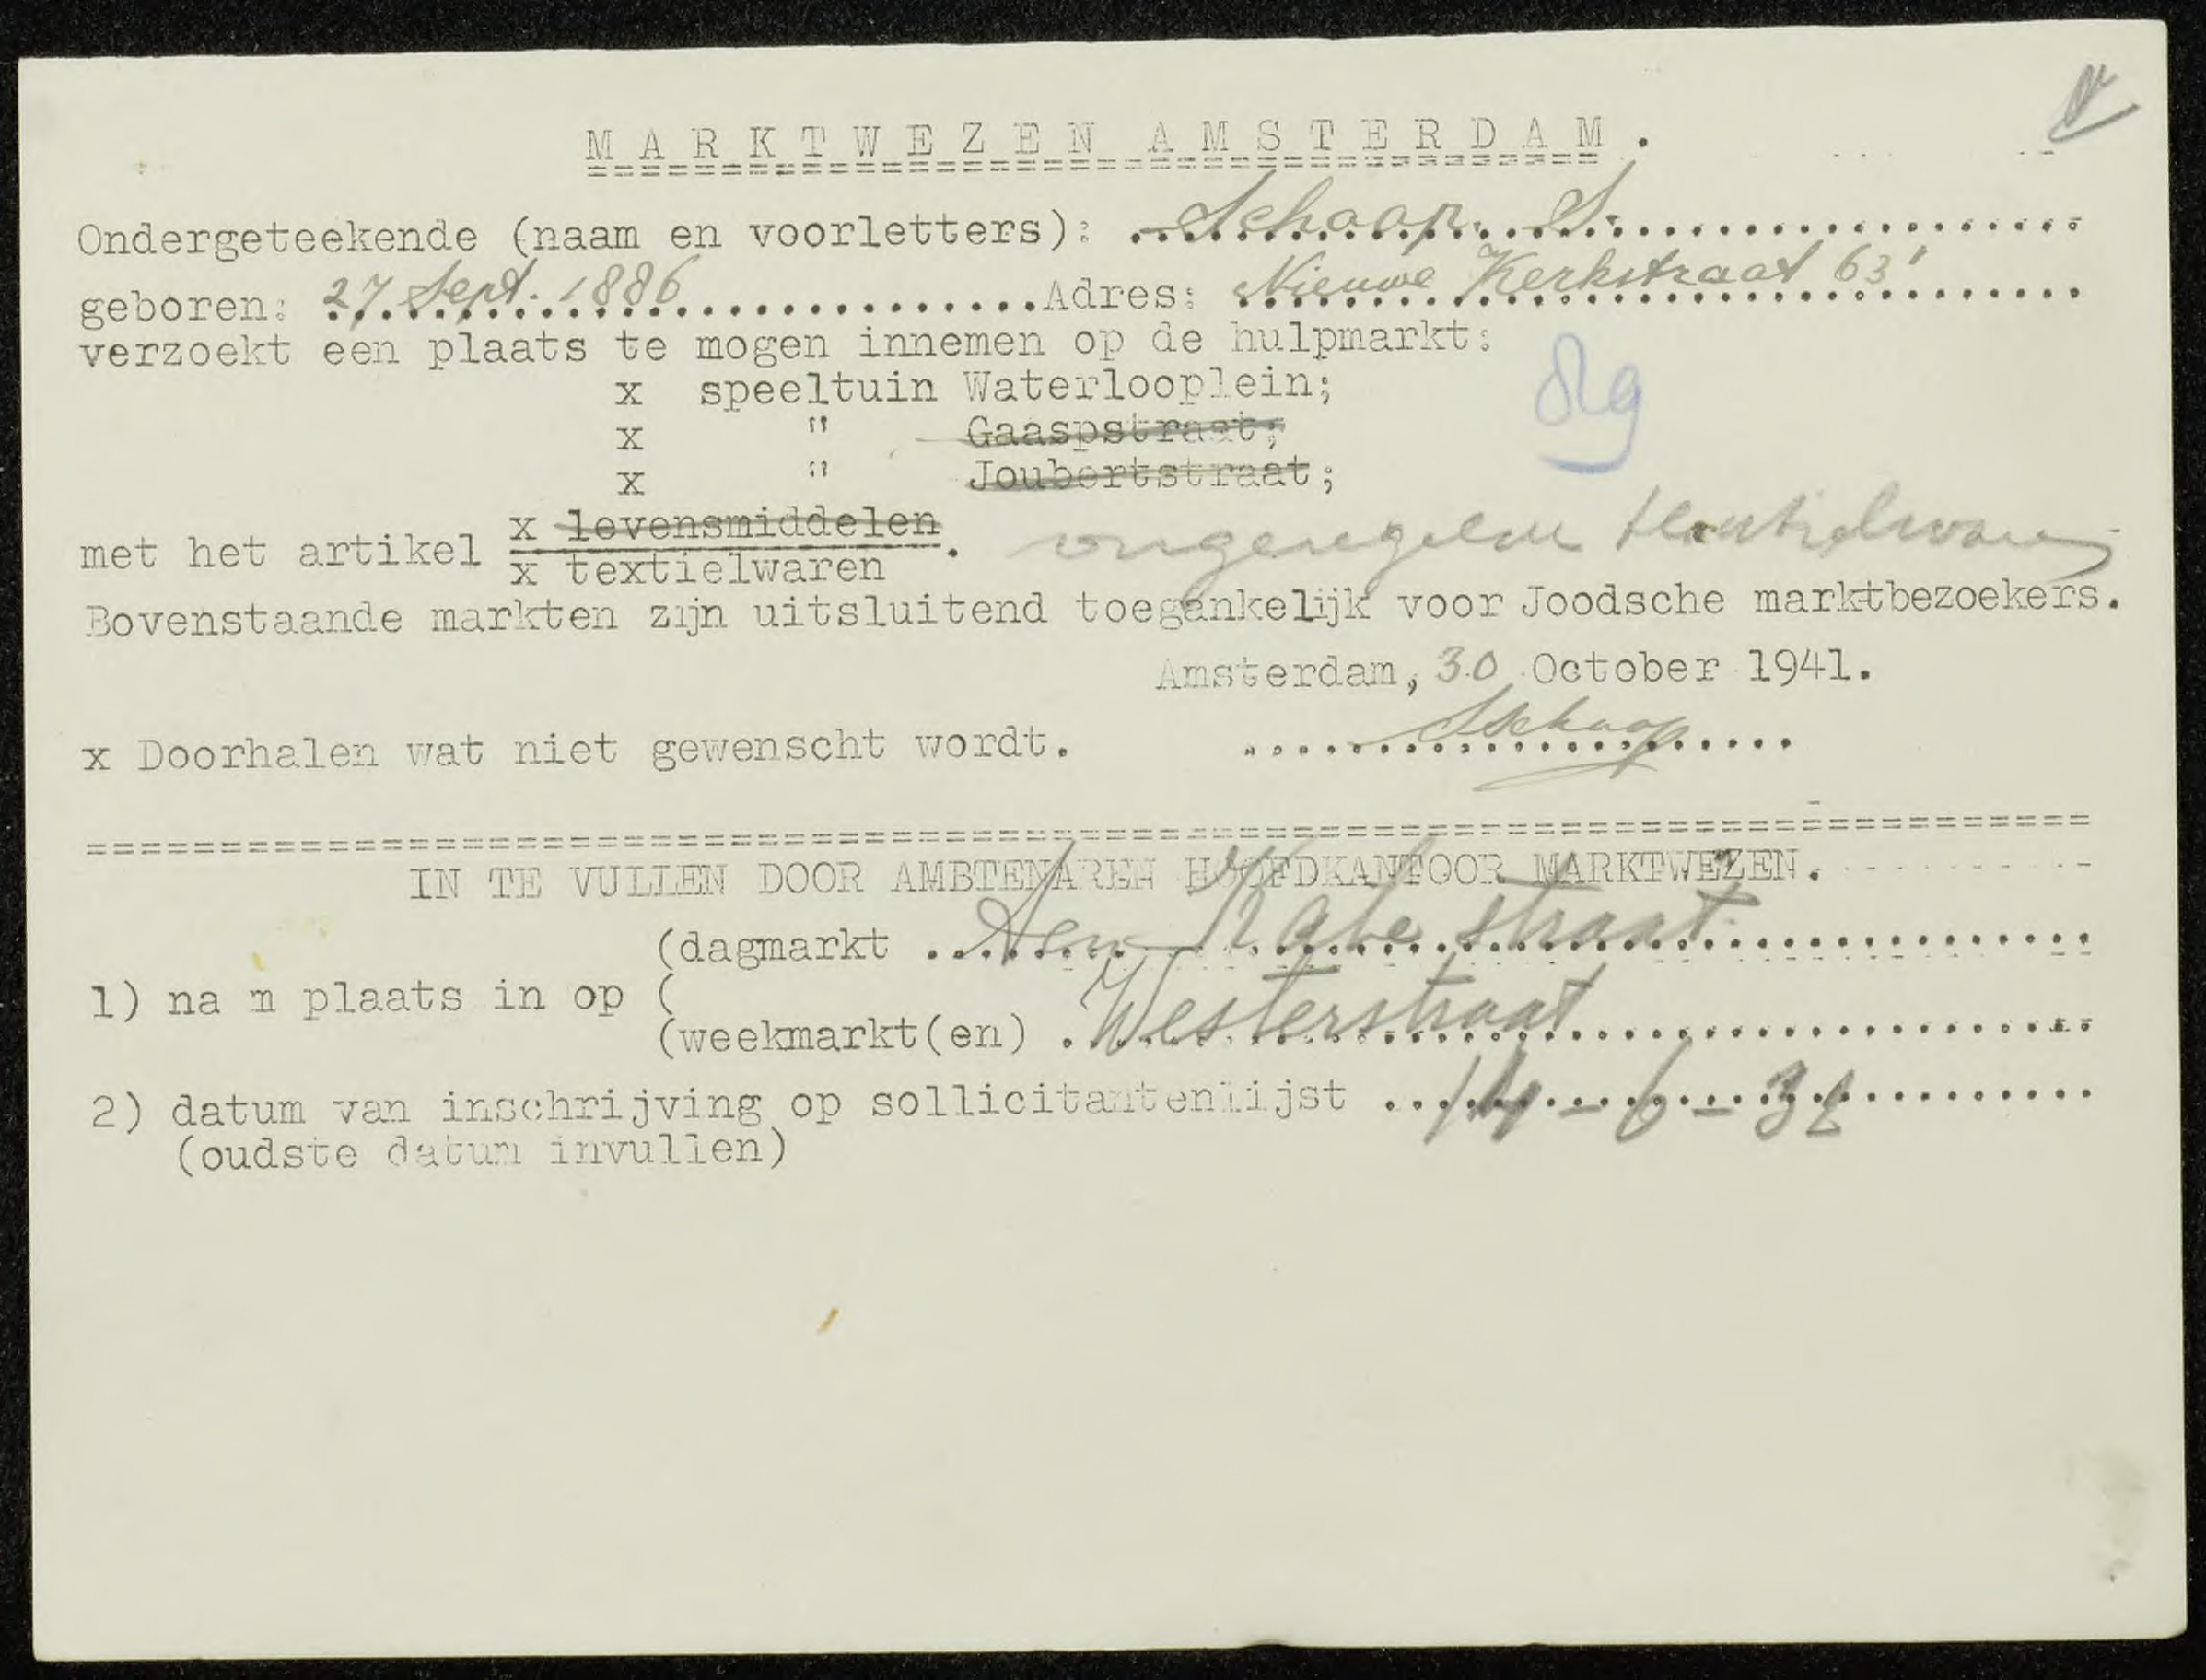 MARKTWEZEN AMSTERDAM.
Ondergeteekende (naam en voorletters): Schaap. S.
geboren: 27 Sept. 1886 Adres: Nieuwe Kerkstraat 63'
verzoekt een plaats te mogen innemen op de hulpmarkt:
x speeltuin Waterlooplein;
x " Gaaspstraat;
x " Joubertstraat;
met het artikel x levensmiddelen
x textielwaren. ongeregelde
Bovenstaande markten zijn uitsluitend toegankelijk voor Joodsche marktbezoekers.
Amsterdam, 30 October 1941.
x Doorhalen wat niet gewenscht wordt. SSchaap
=====
IN TE VULLEN DOOR AMBTENAREN HOOFDKANTOOR MARKTWEZEN.
(dagmarkt Ten Kate straat
1) na m plaats in op (
(weekmarkt(en) Westerstraat
2) datum van inschrijving op sollicitantenlijst 14-6-38
(oudste datum invullen)